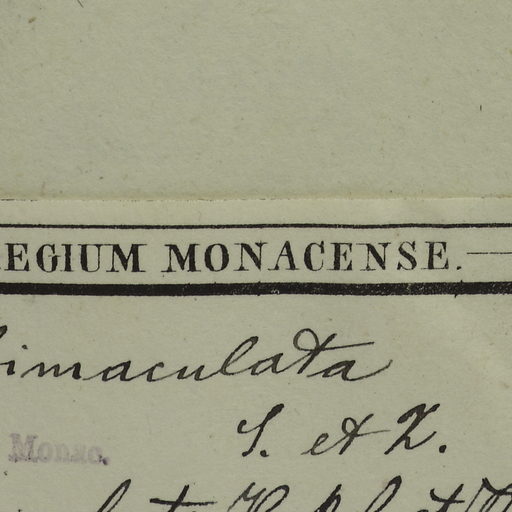 REGIUM MONACENSE.
bimaculata
S. et Z.
Monac.